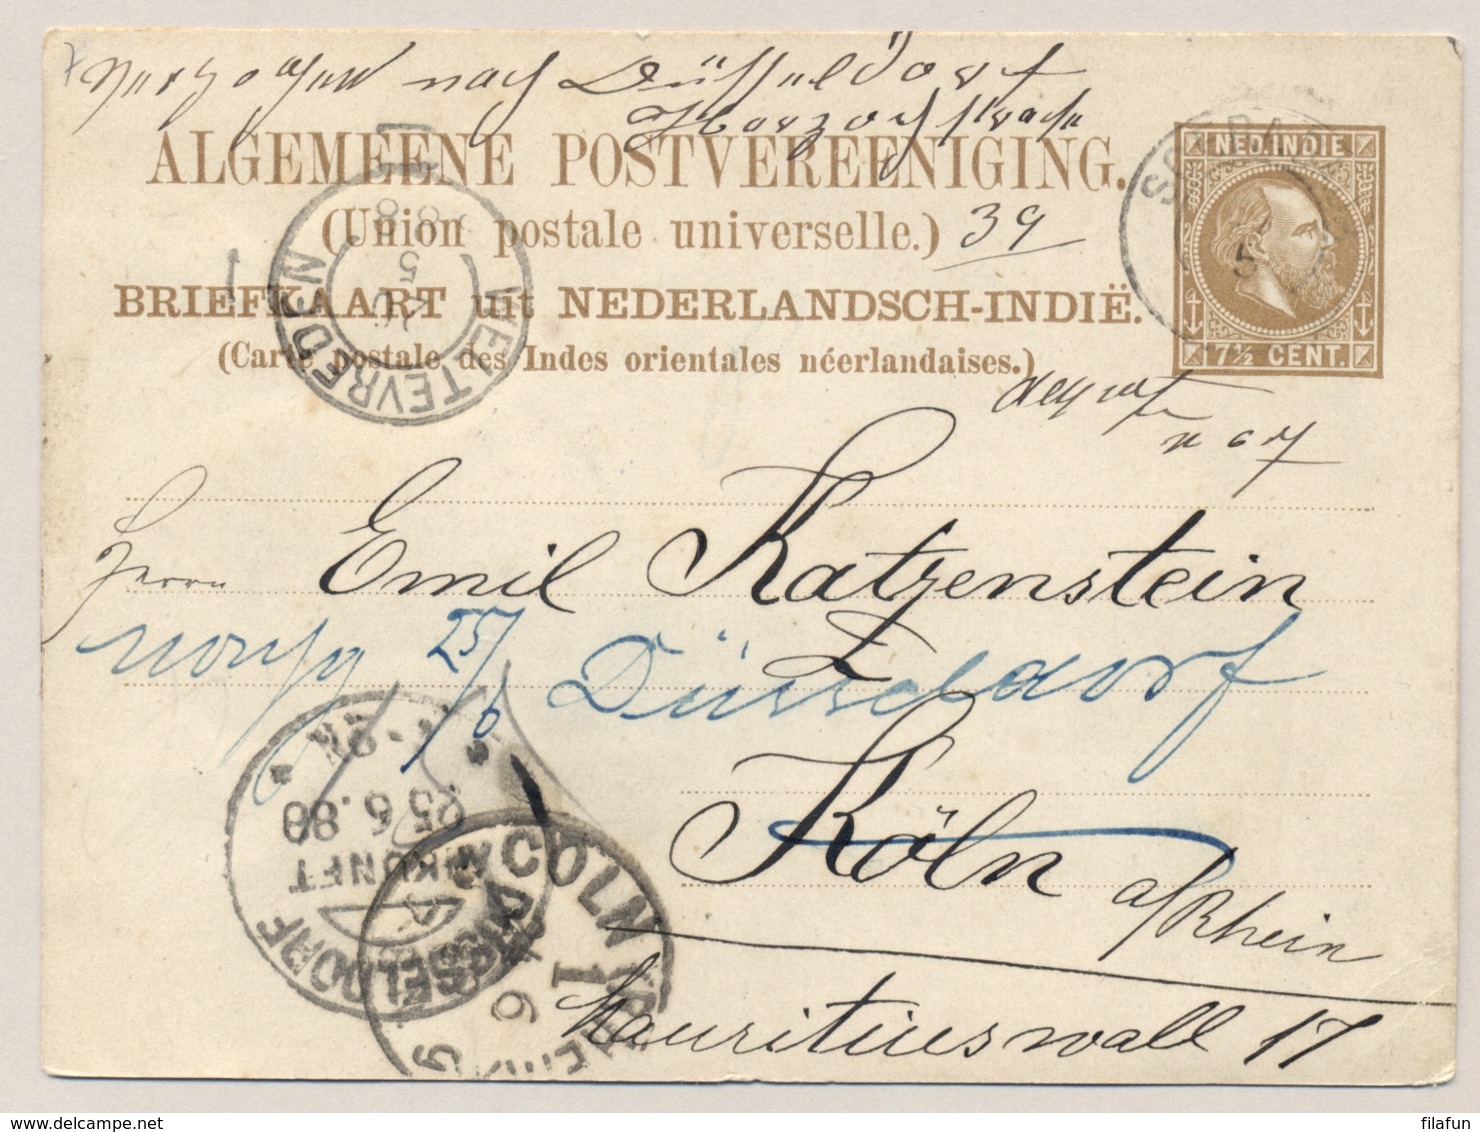 Verzogen nach Düsseldorf
Herzogstrasse
ALGEMEENE POSTVEREENIGING.
NED. INDIE
(Union postale universelle.) 39
BRIEFKAART uit NEDERLANDSCH-INDIË.
(Carte postale des Indes orientales néerlandaises.)
7½ CENT.
WELTEVREDEN
5
Herrn Emil Katzenstein
25/6 Düsseldorf
Köln
a/Rhein
Mauritiuswall 17
25.6.88
ANKUNFT
DÜSSELDORF
CÖLN
1
6
filafun